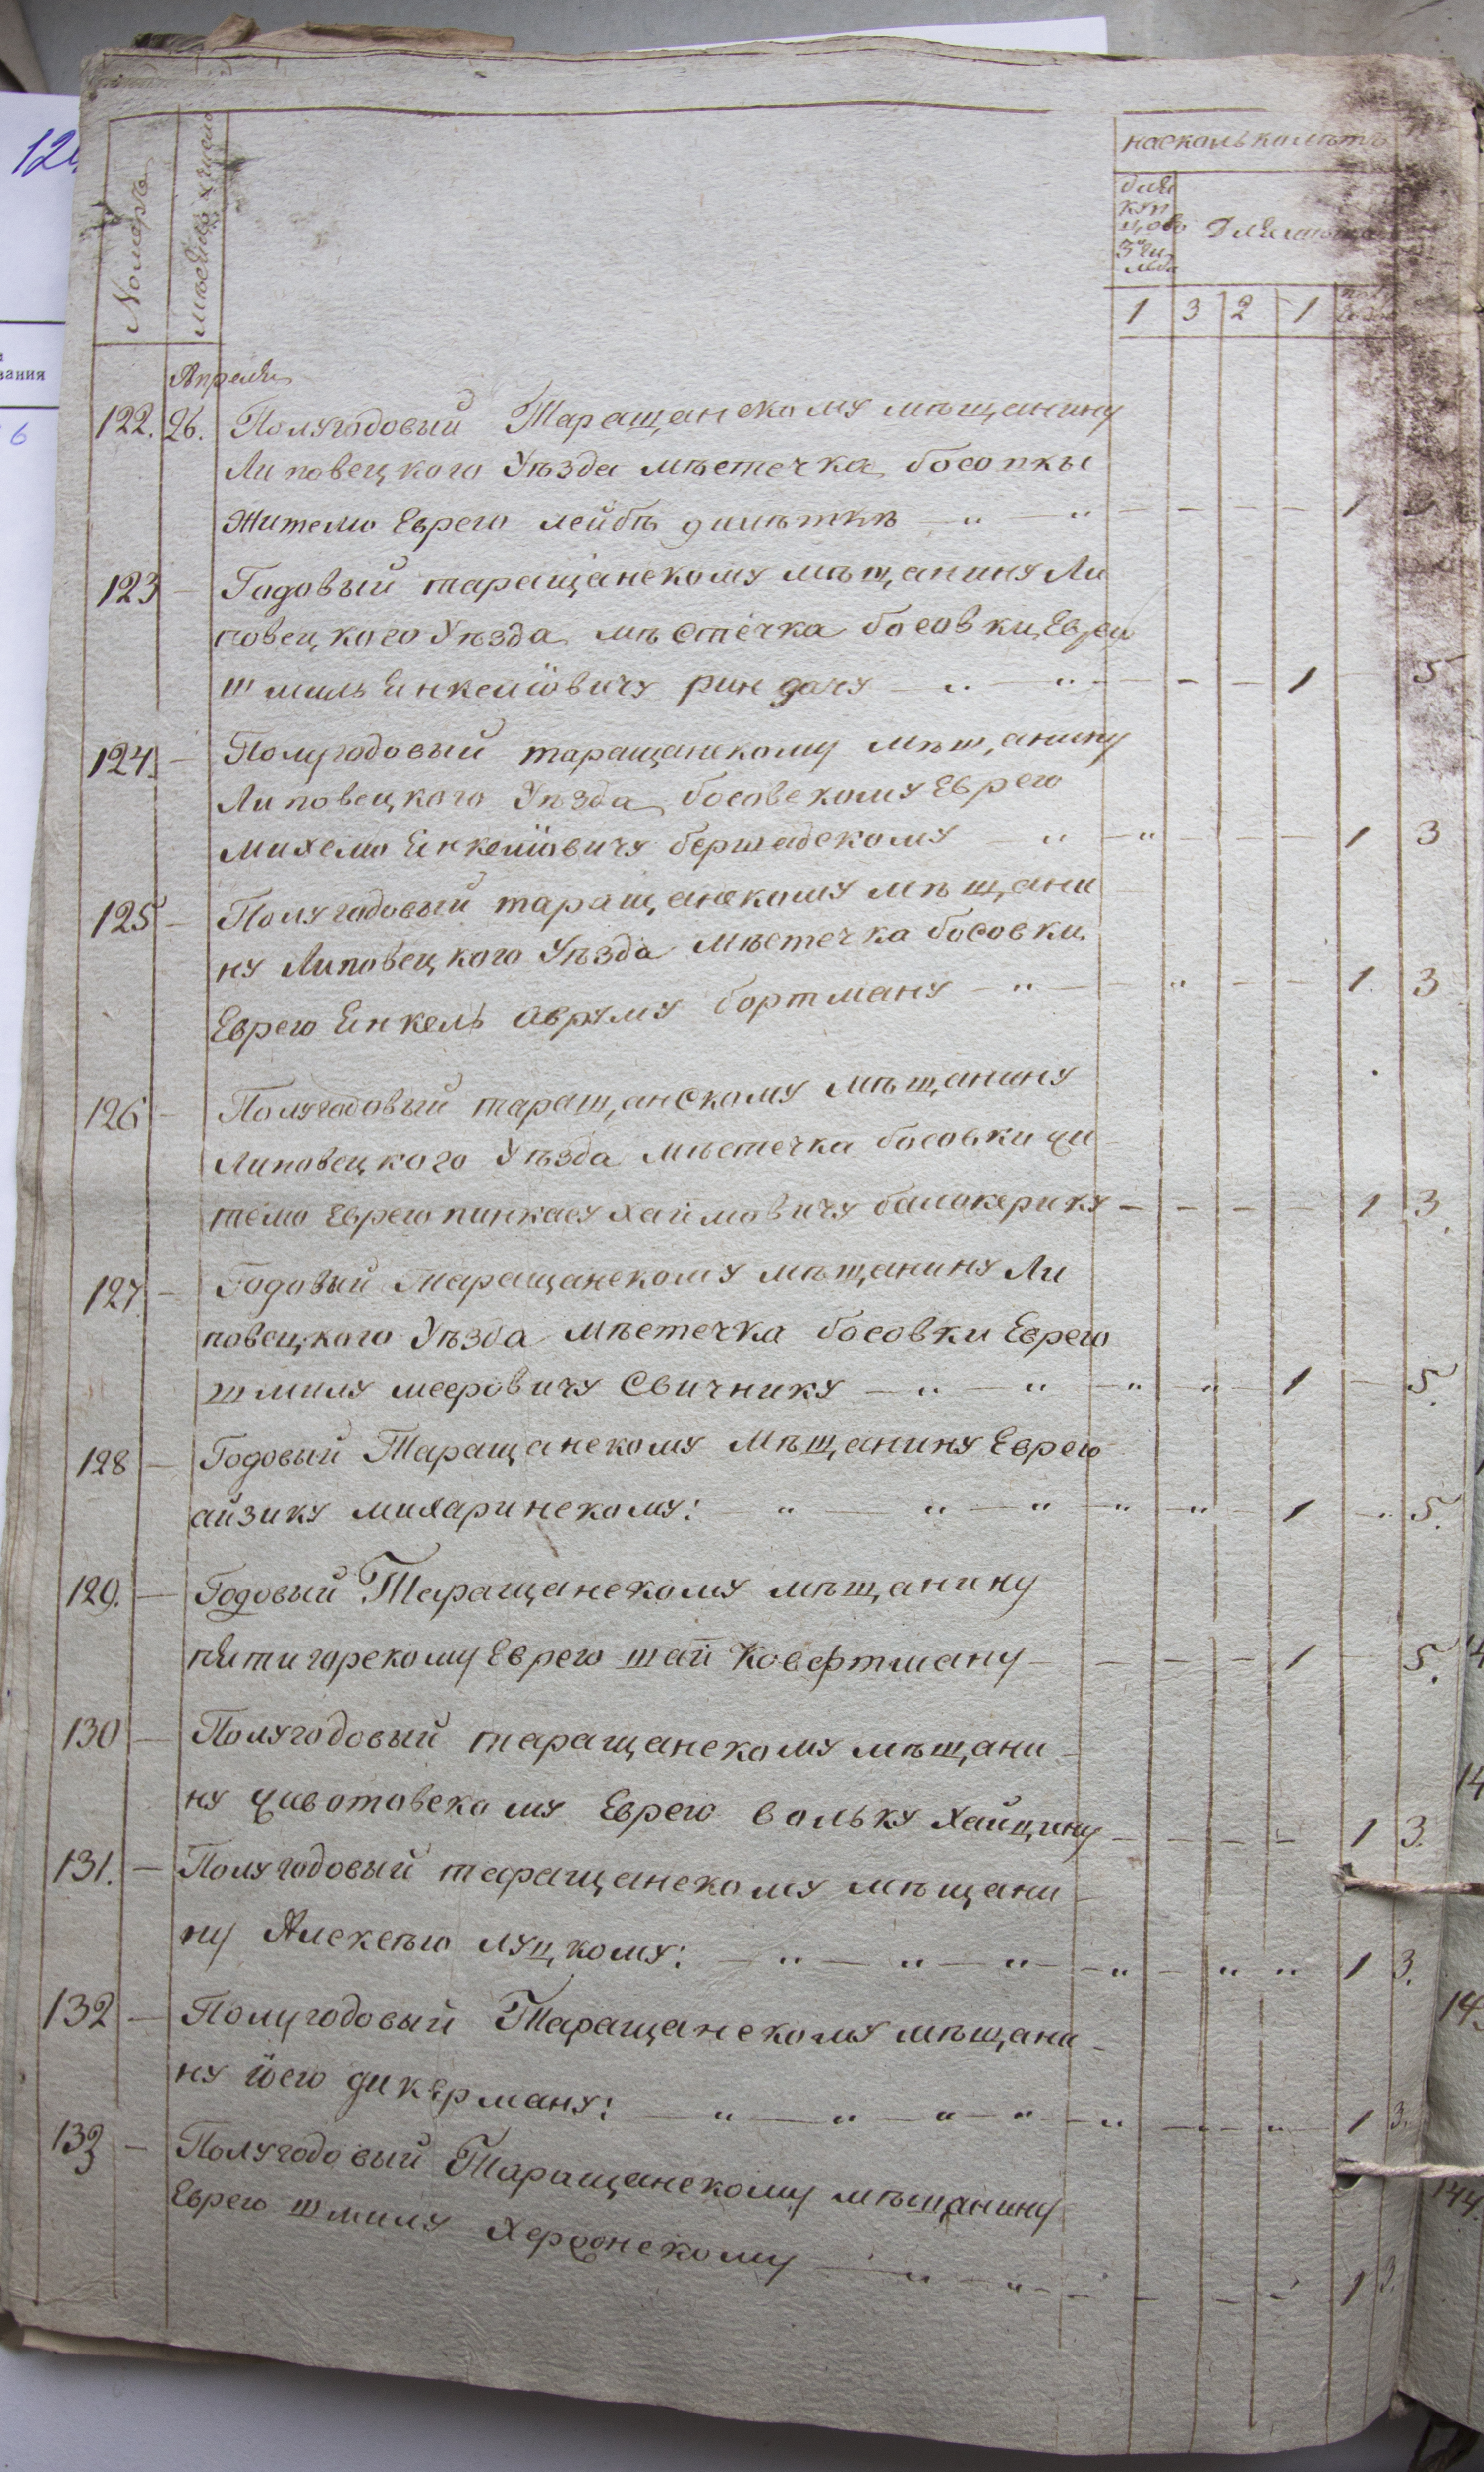 124
вания
6
Номеръ
мѣсяцъ и число
насколько лѣтъ
для
куп
цовъ
3й ги
льд
Для мѣщанъ
1 3 2 1
Апреля
122. 26. Полугодовый Таращанскому мѣщанину
Липовецкого Уѣзда мѣстечка босопки
Жителю Еврею лейбѣ — „ — „ — — — — 1
123 — Годовый таращанскому мѣщанину Ли
повецкого Уѣзда мѣстечка босовки, Еврею
шмиль Енкелиовичу рин дачу — „ — „ — — — 1 — 5
124. — Полугодовый таращанскому мѣщанину
Липовецкого Уѣзда босовскому Еврею
михелю Енкелиовичу бершадскому — „ — „ — — — 1 3
125 — Полугодовый таращанскому мѣщани
ну Липовецкого Уѣзда мѣстечка босовки
Еврею Енкель Авруму бортману — „ — „ — — 1 3
126 — Полугодовый таращанскому мѣщанину
Липовецкого Уѣзда мѣстечка босовки жи
телю Еврею пинкасу хаимовичу балакерику — — — — 1 3
127. — Годовый таращанскому мѣщанину Ли
повецкого Уѣзда мѣстечка босовки Еврею
шмилу мееровичу Свичнику — „ — „ — „ „ — 1 — 5.
128 — Годовый Таращанскому мѣщанину Еврею
айзику михаринскому: „ — „ — „ — „ — „ — 1 — 5.
129. — Годовый Таращанскому мѣщанину
пятигорскому Еврею шаи Ковефтману — — — — 1 — 5.
130 — Полугодовый таращанскому мѣщани
ну животовскому Еврею вольку Хайцину — — — — 1 3.
131. — Полугодовый таращанскому мѣщани
ну Алексѣю луцкому: — „ — „ — „ — „ — „ „ 1 3.
132 — Полугодовый Таращанскому мѣщани
ну иосю дикерману: — „ — „ — „ — „ — „ — „ — 1 3.
133 — Полугодовый Таращанскому мѣщанину
Еврею шмилу Херсонскому — „ — „ — — — — 1 3.
14
14
144.